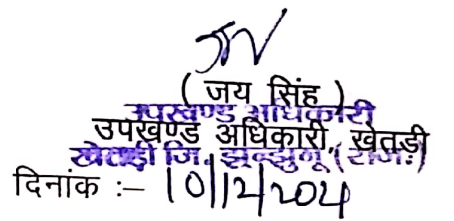 ( जय सिंह )
उपखण्ड अधिकारी
उपखण्ड अधिकारी, खेतड़ी
खेतड़ी जि. झुन्झुनू (राज.)
दिनांक :– 10/12/2024